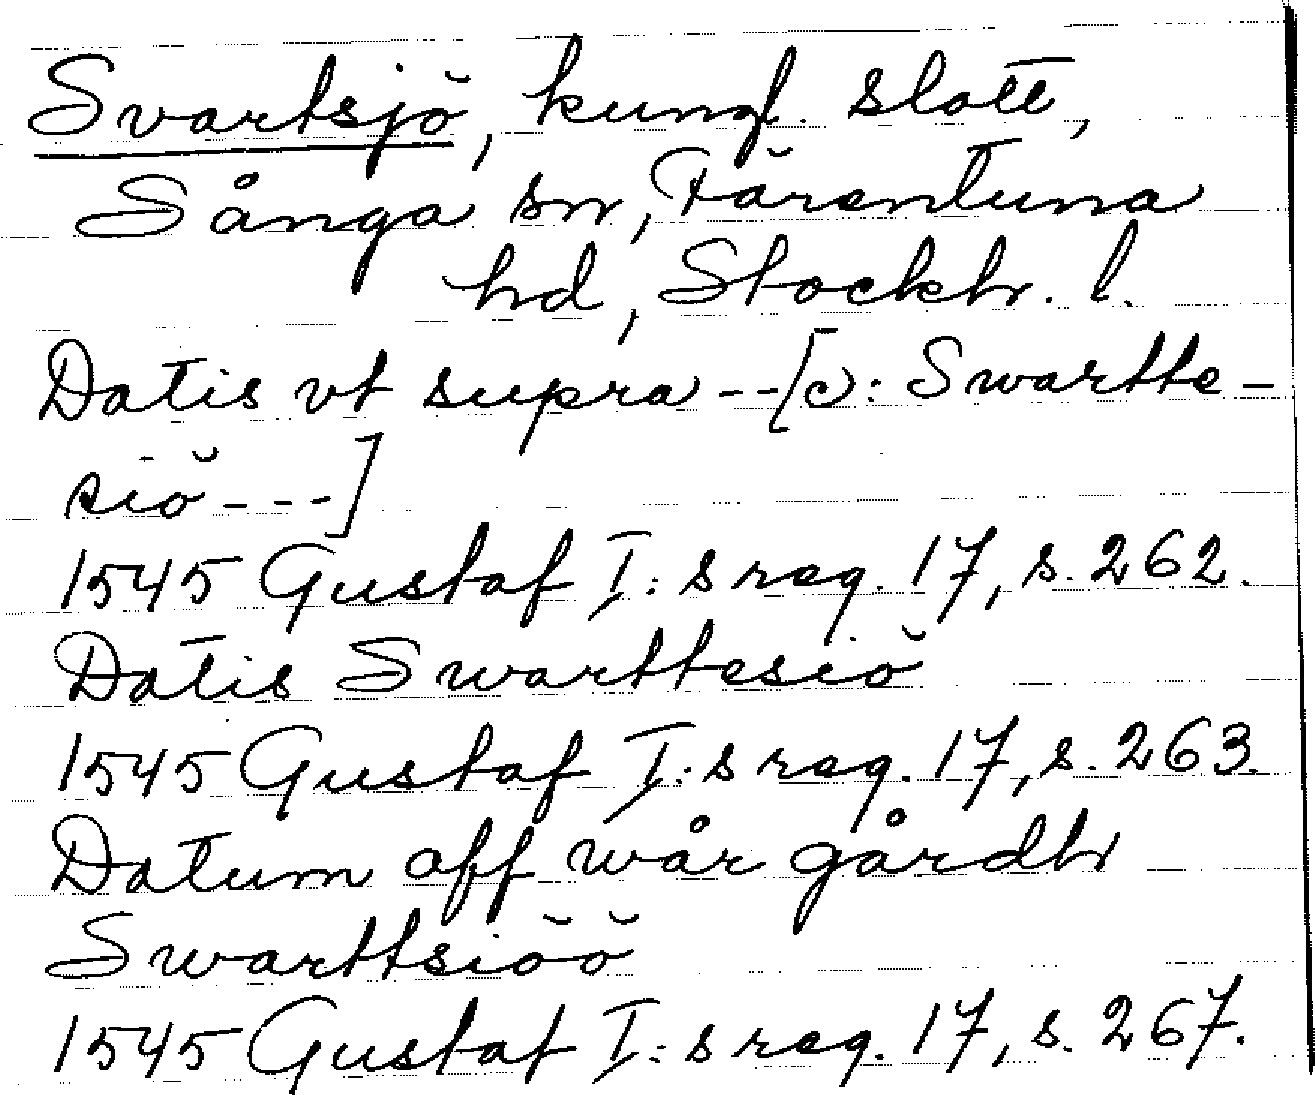 Svartsjö, kungl. slott,
Sånga sn, Färentuna
hd, Stockh. l.
Datis vt supra --[ɔ: Swartte-
siö---]
1545 Gustaf I:s reg. 17, s. 262.
Datis Swarttesiö
1545 Gustaf I:s reg. 17, s. 263.
Datum aff wår gårdh
Swarttsiöö
1545 Gustaf I:s reg. 17, s. 267.